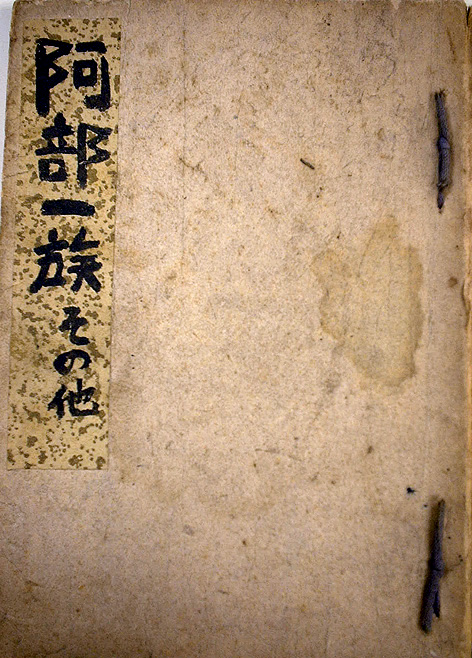 阿部一族 その他